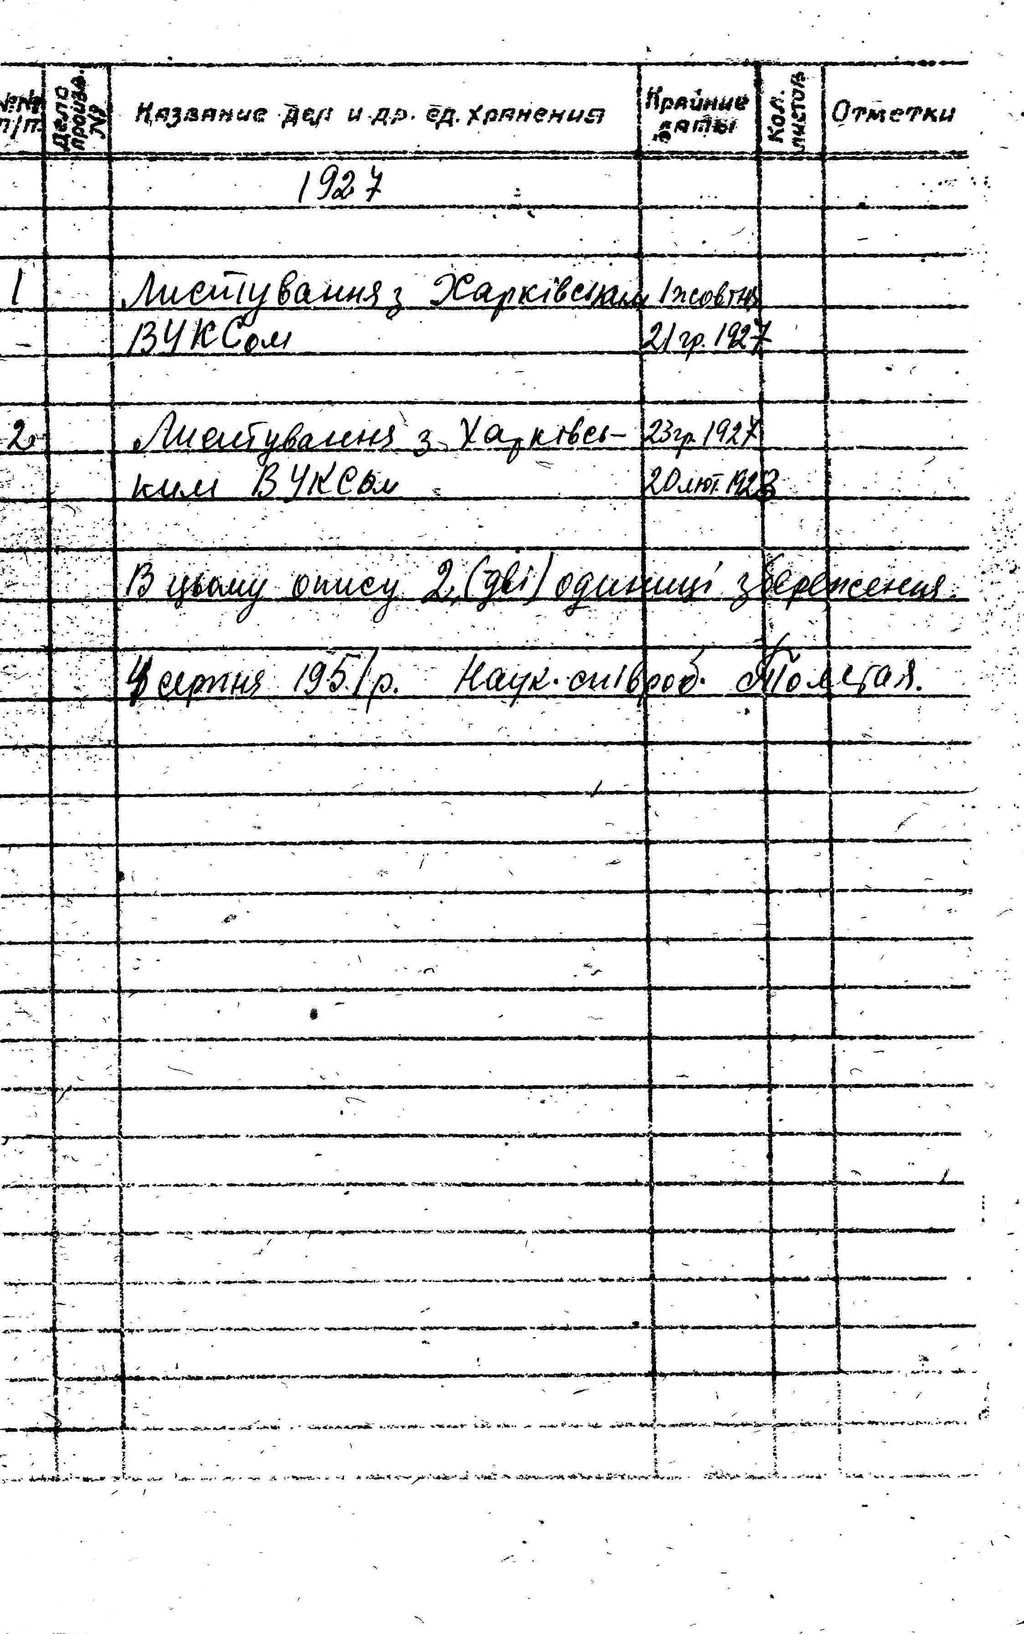 №№ п/п Дело произв. № Название дел и др. ед. хранения Крайние даты Кол. листов Отметки
1927
1 Листування з Харківським 1 жовтня
ВУКСом 21 гр. 1927
2. Листування з Харківсь- 23 гр. 1927
ким ВУКСом 20 лют. 1928
В цьому опису 2 (дві) одиниці збереження.
4 серпня 1951 р. Наук. співроб.